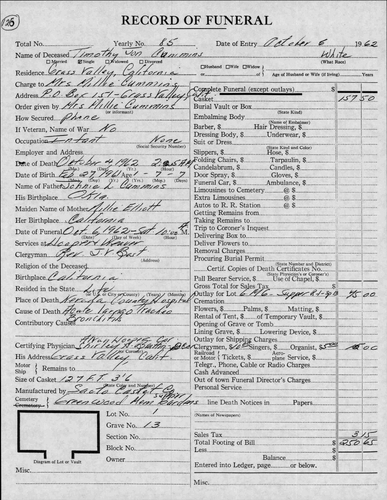 25
RECORD OF FUNERAL
Total No. Yearly No. 85 Date of Entry October 6 1962
Name of Deceased Timothy Von Cummins White
Married Single Widowed Divorced (What Race)
Residence Grass Valley, California Husband Wife Widow Age of Husband or Wife (if living) Years
Charge to Mrs Millie Cummins
Address P.O. Box 157 - Grass Valley
Order given by Mrs Millie Cummins
How Secured phone
If Veteran, Name of War No
Occupation Infant None
(Social Security Number)
Employer and Address
Date of Death October 4, 1962
Date of Birth
Name of Father Johnie L Cummins
His Birthplace Okla
Maiden Name of Mother Millie Elliott
Her Birthplace California
Date of Funeral Oct 6, 1962 - Sat 10:00
Services at
Clergyman Rev. J.V.
Religion of the Deceased
Birthplace California
Resided in the State Life
Place of Death Hospital
Cause of Death
Contributory Causes
Certifying Physician
His Address Grass Valley Calif
Motor
Ship Remains to
Size of Casket
Manufactured by
Cemetery
Crematory Greenwood Mem Gardens
Lot No. 1
Grave No. 13
Section No.
Block No.
Owner
Diagram of Lot or Vault
Misc.
Complete Funeral (except outlays) $
Casket 157 50
Burial Vault or Box
(State Kind)
Embalming Body
(Name of Embalmer)
Barber, $ Hair Dressing, $
Dressing Body, $ Underwear, $
Suit or Dress
(State Kind and Color)
Slippers, $ Hose, $
Folding Chairs, $ Tarpaulin, $
Candelabrum, $ Candles, $
Door Spray, $ Gloves, $
Funeral Car, $ Ambulance, $
Limousines to Cemetery @ $
Extra Limousines @ $
Autos to R. R. Station @ $
Getting Remains
Taking Remains to
Trip to Coroner's Inquest
Delivering Box to
Deliver Flowers to
Removal Charges
Procuring Burial Permit
(State District and Number)
Certif. Copies of Death Certificates No.
Pall Bearer Service, $ Use of Chapel, $
Gross Total for Sales Tax $
Outlay for Lot 75 00
Flowers, $ Palms, $ Matting, $
Rental of Tent, $ of Temporary Vault, $
Opening of Grave or Tomb
Lining Grave, $ Lowering Device, $
Outlay for Shipping Charges
Clergyman, $ Singers, $ Organist, $ 15 00
Railroad Aero-
or Motor Tickets, $ plane Service, $
Telegr., Phone, Cable or Radio Charges
Cash Advanced
Out of town Funeral Director's Charges
Personal Service
line Death Notices in Papers
(Names of Newspapers)
Sales Tax 3 15
Total Footing of Bill $ 250 65
Less
Balance $
Entered into Ledger, page or below.
Misc.